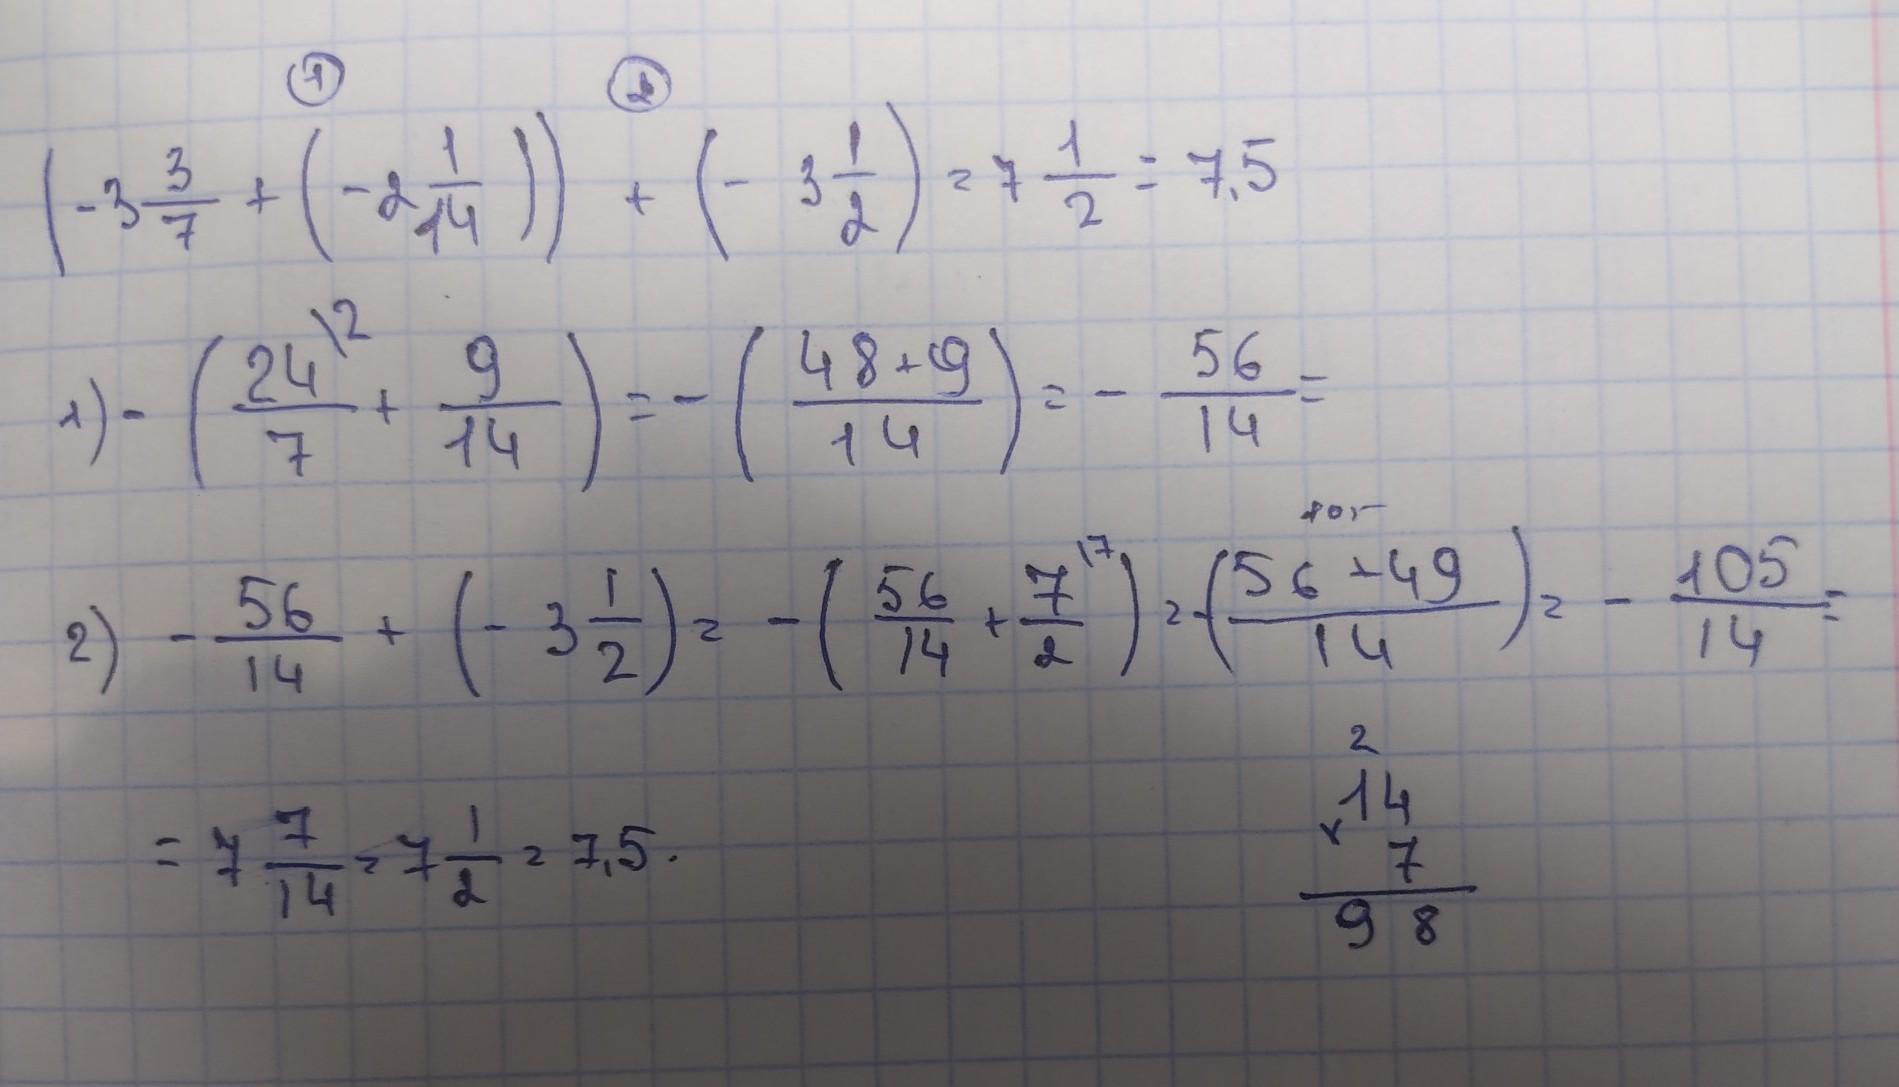 ① ②
(-3 3/7 + (-2 1/14)) + (- 3 1/2) = 7 1/2 = 7,5
1) - (24\2/7 + 9/14) = - (48+9/14) = - 56/14 =
2) - 56/14 + (- 3 1/2) = - (56/14 + 7\7/2) = -(56+49/14) = - 105/14 =
= 7 7/14 = 7 1/2 = 7,5.
2
14
× 7
98